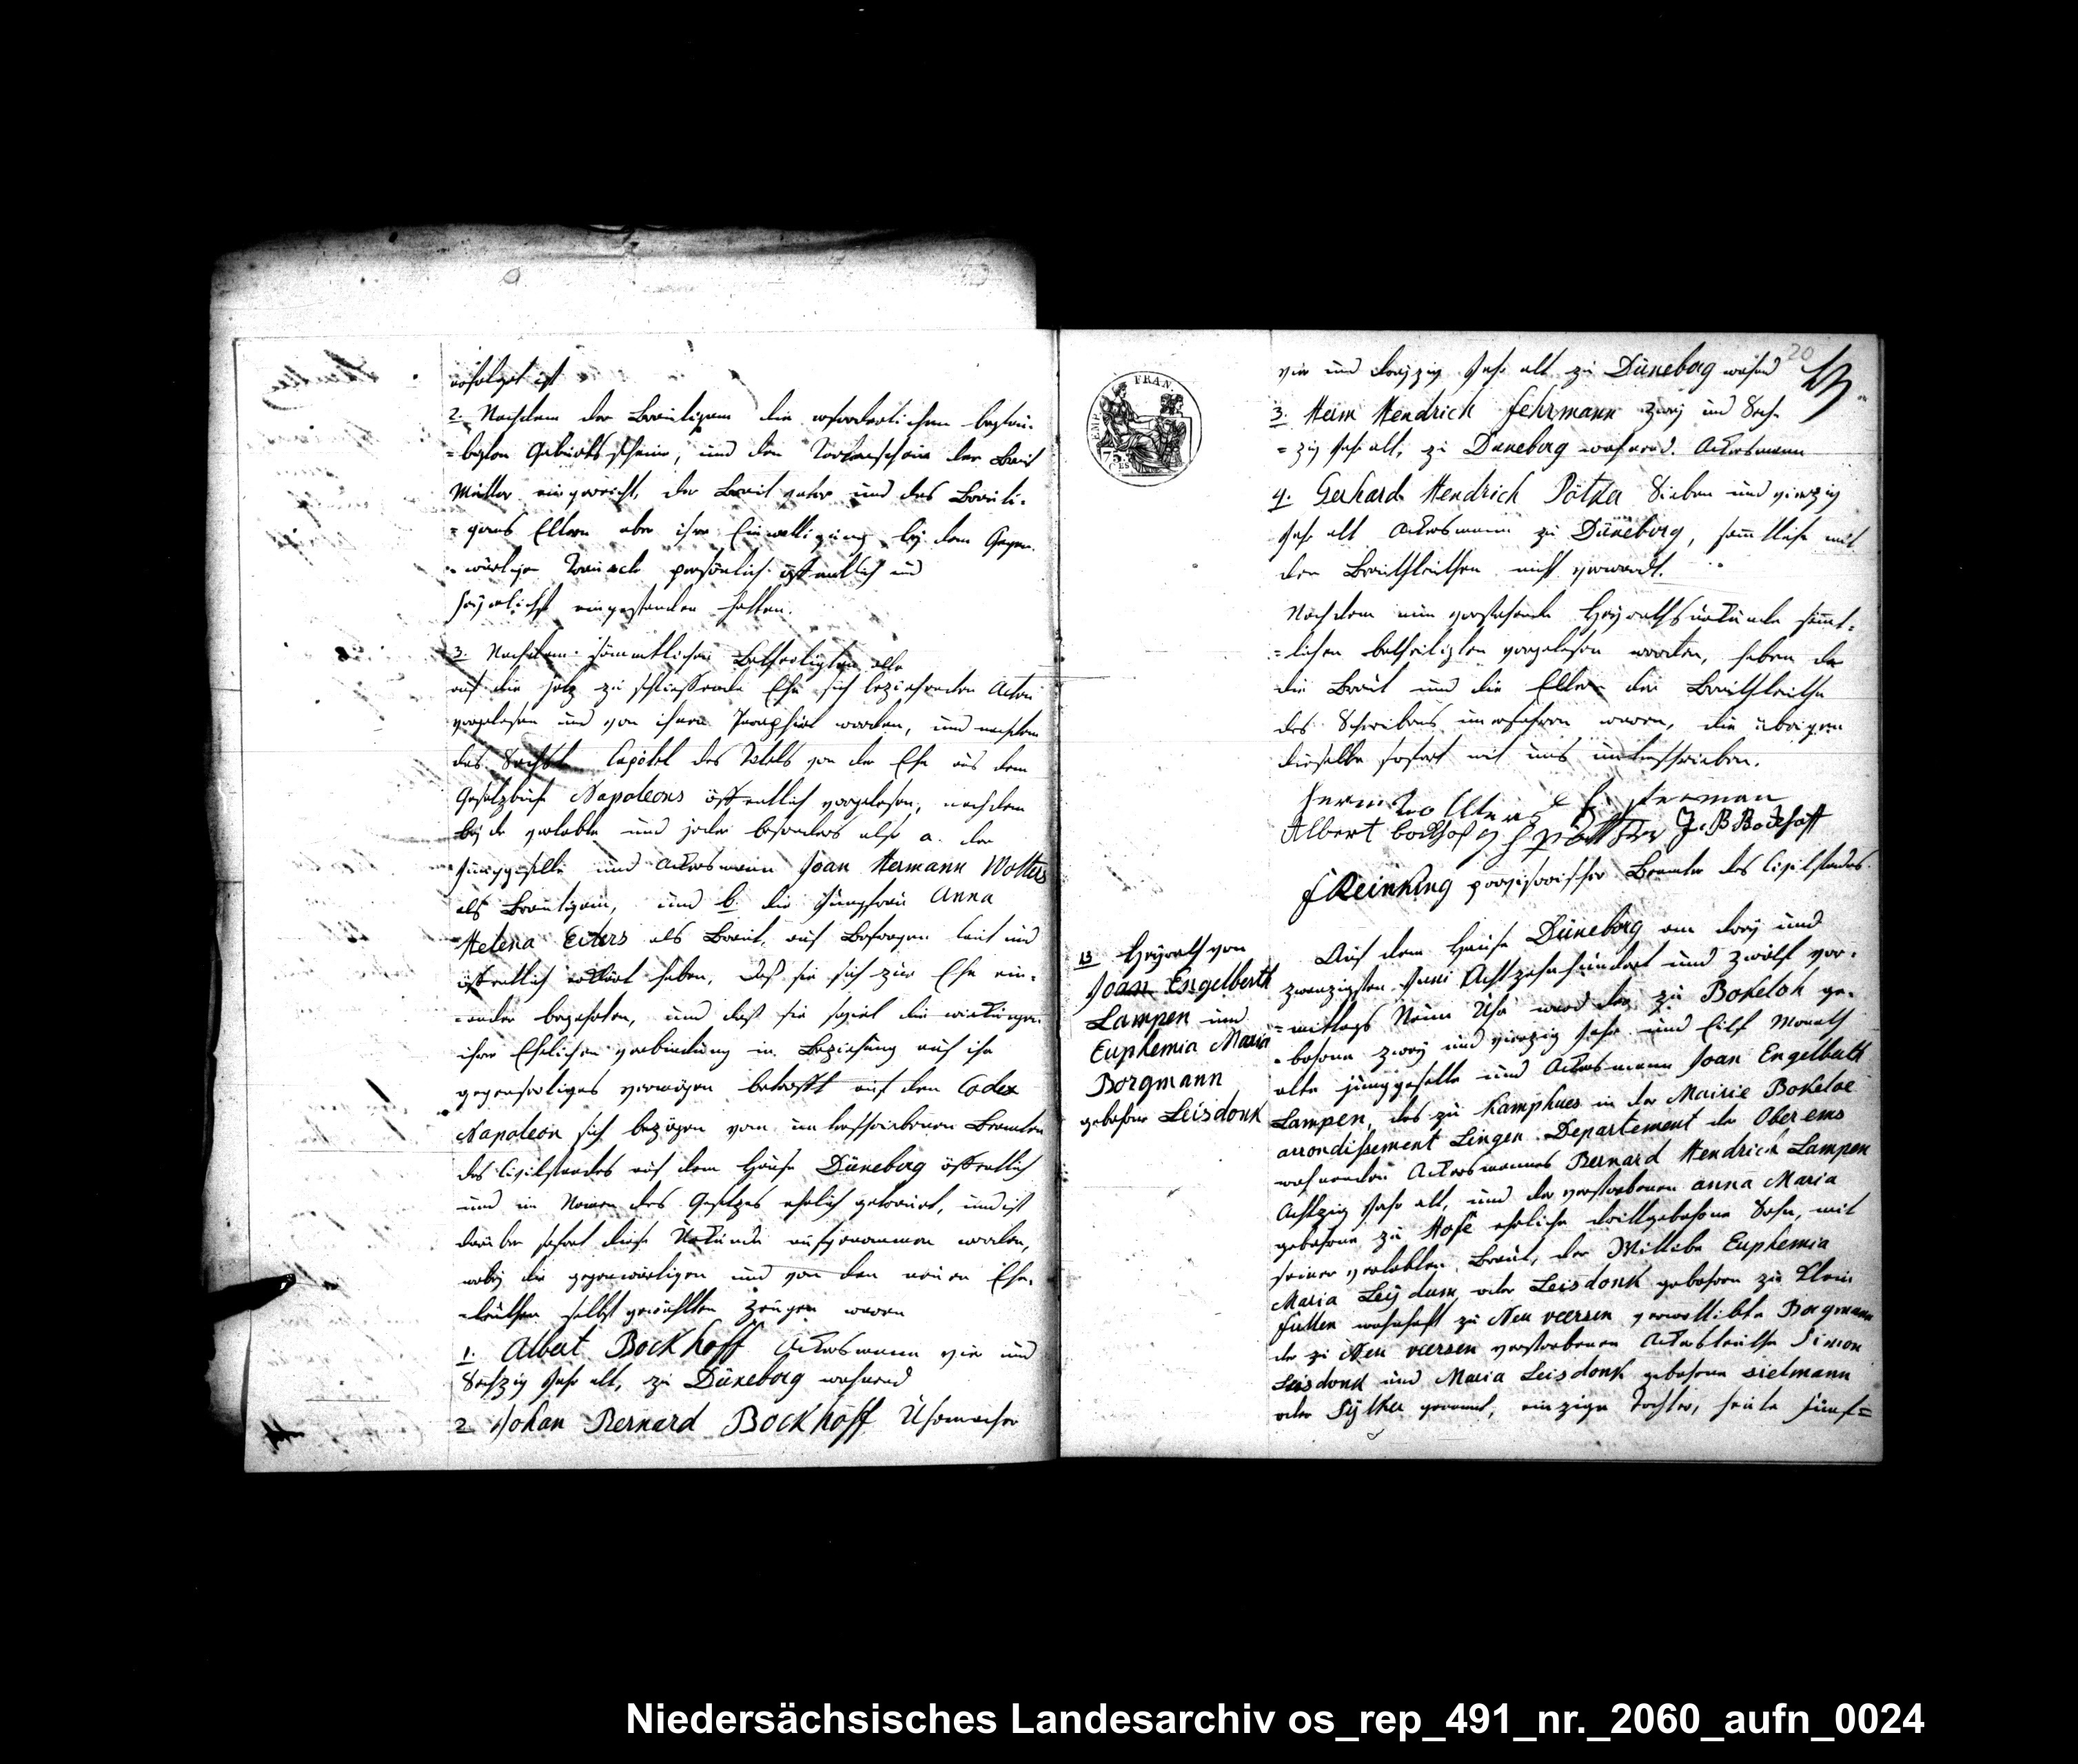 erfolget ist
2. Nachdem der Bräutigam die erforderlichen beglau-
=bigten Geburtsscheine, und den Todtenschein der Braut
Mutter eingereicht, der Braut vater und des Bräuti-
=gams Eltern aber ihre Einwilligung bey dem Gegen-
=wärtigen Trauact persönlich öffentlich und
feyerlichst eingestanden hatten.
3. Nachdem sämmtlichen Betheiligten alle
auf die jetz zu schliessende Ehe sich beziehenden Acten
vorgelesen und von ihnen Paraphiert worden, und nachdem
das Sechste Capittel des Titels von der Ehe aus dem
Gesetzbuch Napoleons öffentlich vorgelesen, nachdem
beyde verlobte und jeder besonders also a. der
Junggeselle und Ackersmann Joan Hermann Wolters
als Bräutigam, und b. die Jungfrau Anna
Helena Eilers als Braut, auf Befragen laut und
öffentlich erklärt haben, daß sie sich zur Ehe ein-
=ander begehrten, und daß sie soviel die wirkungen
ihrer Ehelichen verbindung in Beziehung auf ihr
gegenseitiges vermögen betrifft auf den Codex
Napoleon sich bezögen vom unterschriebenen Beamten
des Civilstandes auf dem Hause Düneborg öffentlich
und im Namen des Gesetzes ehelich getrauet, und ist
darüber sofort diese Urkunde aufgenommen worden,
wobey die gegenwärtigen und von den neuen Ehe-
=leuthen selbst gewählten Zeugen waren
1. Albert Bockhoff Ackersmann vier und
Sechzig Jahr alt, zu Düneborg wohnend
2. Johan Bernard Bockhoff Uhrmacher
20
vier und dreyzig Jahr alt zu Düneborg wohnend
3. Herm Hendrich Fehrmann zwey und Sech-
=zig Jahr alt, zu Düneborg wohnend. Ackersmann
4. Gerhard Hendrich Pötker Sieben und vierzig
Jahr alt Ackersmann zu Düneborg, sämtliche mit
den Brautleuthen nicht verwandt.
Nachdem nun vorstehende Heyrathsurkunde sämt-
=lichen betheiligten vorgelesen worden, haben da
die Braut und die Eltern der Brautleuthe
des Schreibens unerfahren waren, die übrigen
dieselbe sofort mit uns unterschrieben.
Albert Bockhof J. B Bockhoff
F Reinking provisorischer Beamter des Civilstandes
13 Heyrath von
Joan Engelberth
Lampen und
Euphemia Maria
Borgmann
gebohrne Leisdonk
Auf dem Hause Düneborg am drey und
zwanzigsten Juni Achtzehnhundert und zwölf vor-
=mittags Neun Uhr ward der zu Bokeloh ge-
=bohrne zwey und vierzig Jahr und Eilf Monath
alte junggeselle und Ackersmann Joan Engelbert
Lampen, des zu Kamphues in der Mairie Bokeloe
arrondissement Lingen Departement der Oberems
wohnenden Ackersmannes Bernard Hendrich Lampen
Achtzig Jahr alt, und der verstorbenen anna Maria
gebohrne zu Hofe eheliche drittgebohrne Sohn, mit
seiner verlobten Braut, der Wittibe Euphemia
Maria Leydum, oder Leisdonk gebohren zu Klein
Fullen wohnhaft zu Neu veersen verwittibte Borgmann
der zu Neu veersen verstorbenen Ackersleuthe Simon
Leisdonk und Maria Leisdonk gebohrne Sielmann
oder Sylker genannt, einzige Tochter, heute fünf=
Niedersächsisches Landesarchiv os_rep_491_nr._2060_aufn_0024